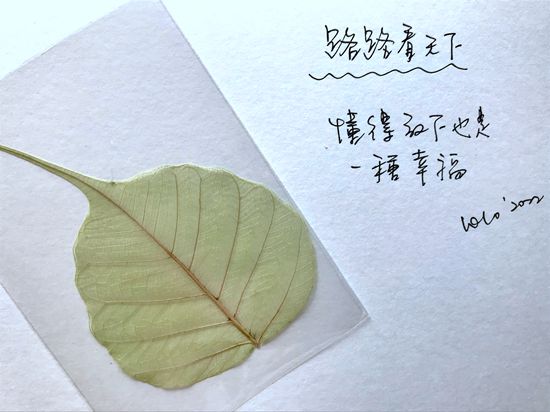 路路看天下
懂得放下也是
一種幸福
lolo'2022